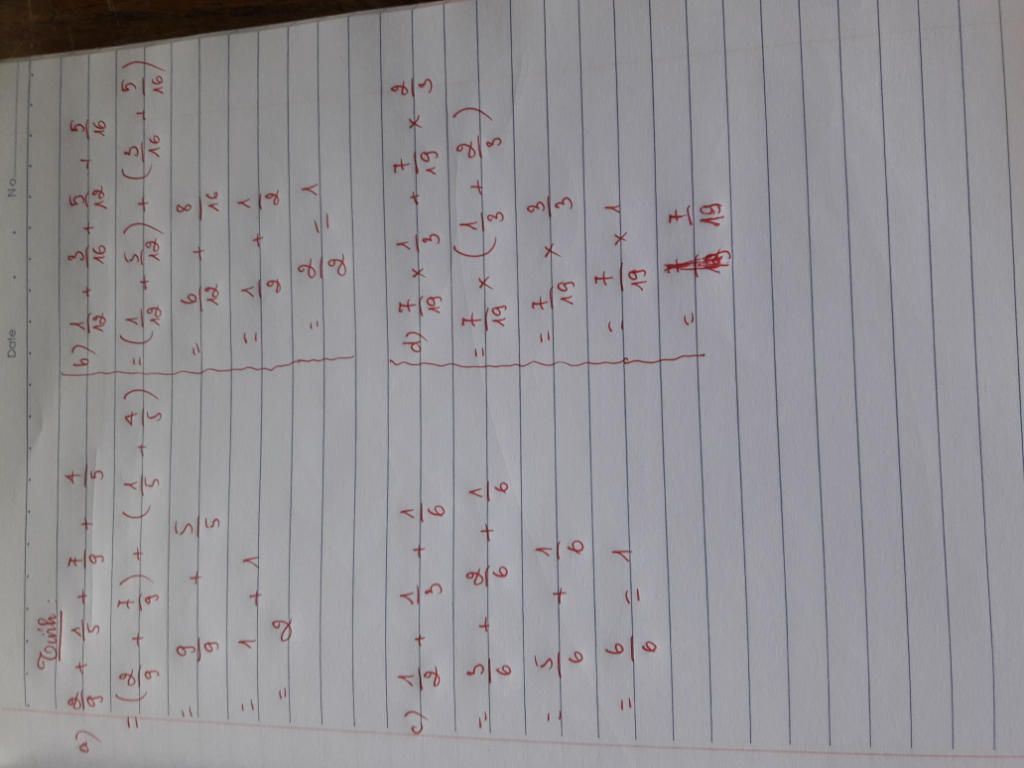 Date . . No.
Tính
a) 2/9 + 1/5 + 7/9 + 4/5
= (2/9 + 7/9) + (1/5 + 4/5)
= 9/9 + 5/5
= 1 + 1
= 2
b) 1/12 + 3/16 + 5/12 + 5/16
= (1/12 + 5/12) + (3/16 + 5/16)
= 6/12 + 8/16
= 1/2 + 1/2
= 2/2 = 1
c) 1/2 + 1/3 + 1/6
= 3/6 + 2/6 + 1/6
= 5/6 + 1/6
= 6/6 = 1
d) 7/19 × 1/3 + 7/19 × 2/3
= 7/19 × (1/3 + 2/3)
= 7/19 × 3/3
= 7/19 × 1
= 7/19